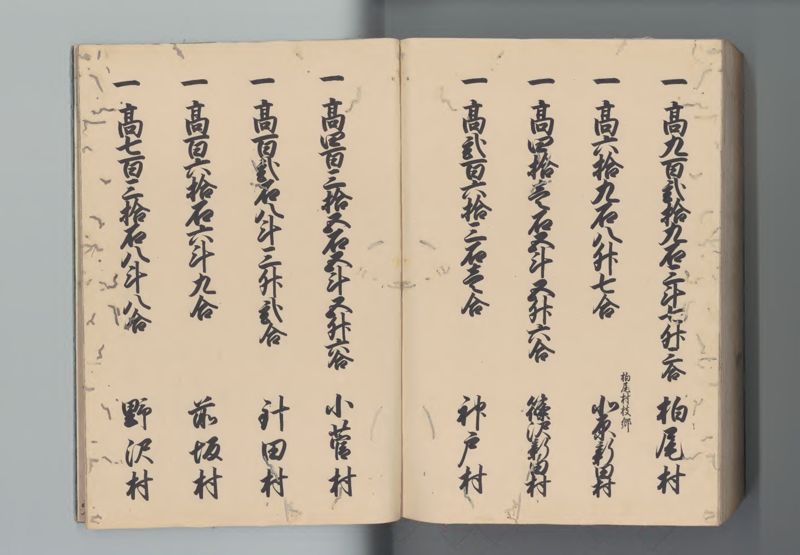 一 高九百弐拾九石三斗七升六合 柏尾村
一 高六拾九石八升七合 柏尾村枝郷 小原新田村
一 高四拾壱石五斗五升六合 篠沢新田村
一 高弐百六拾三石壱合 神戸村
一 高四百三拾五石五斗五升六合 小菅村
一 高百弐石八斗三升弐合 針田村
一 高百六拾石六斗九合 前坂村
一 高七百三拾石八斗八合 野沢村